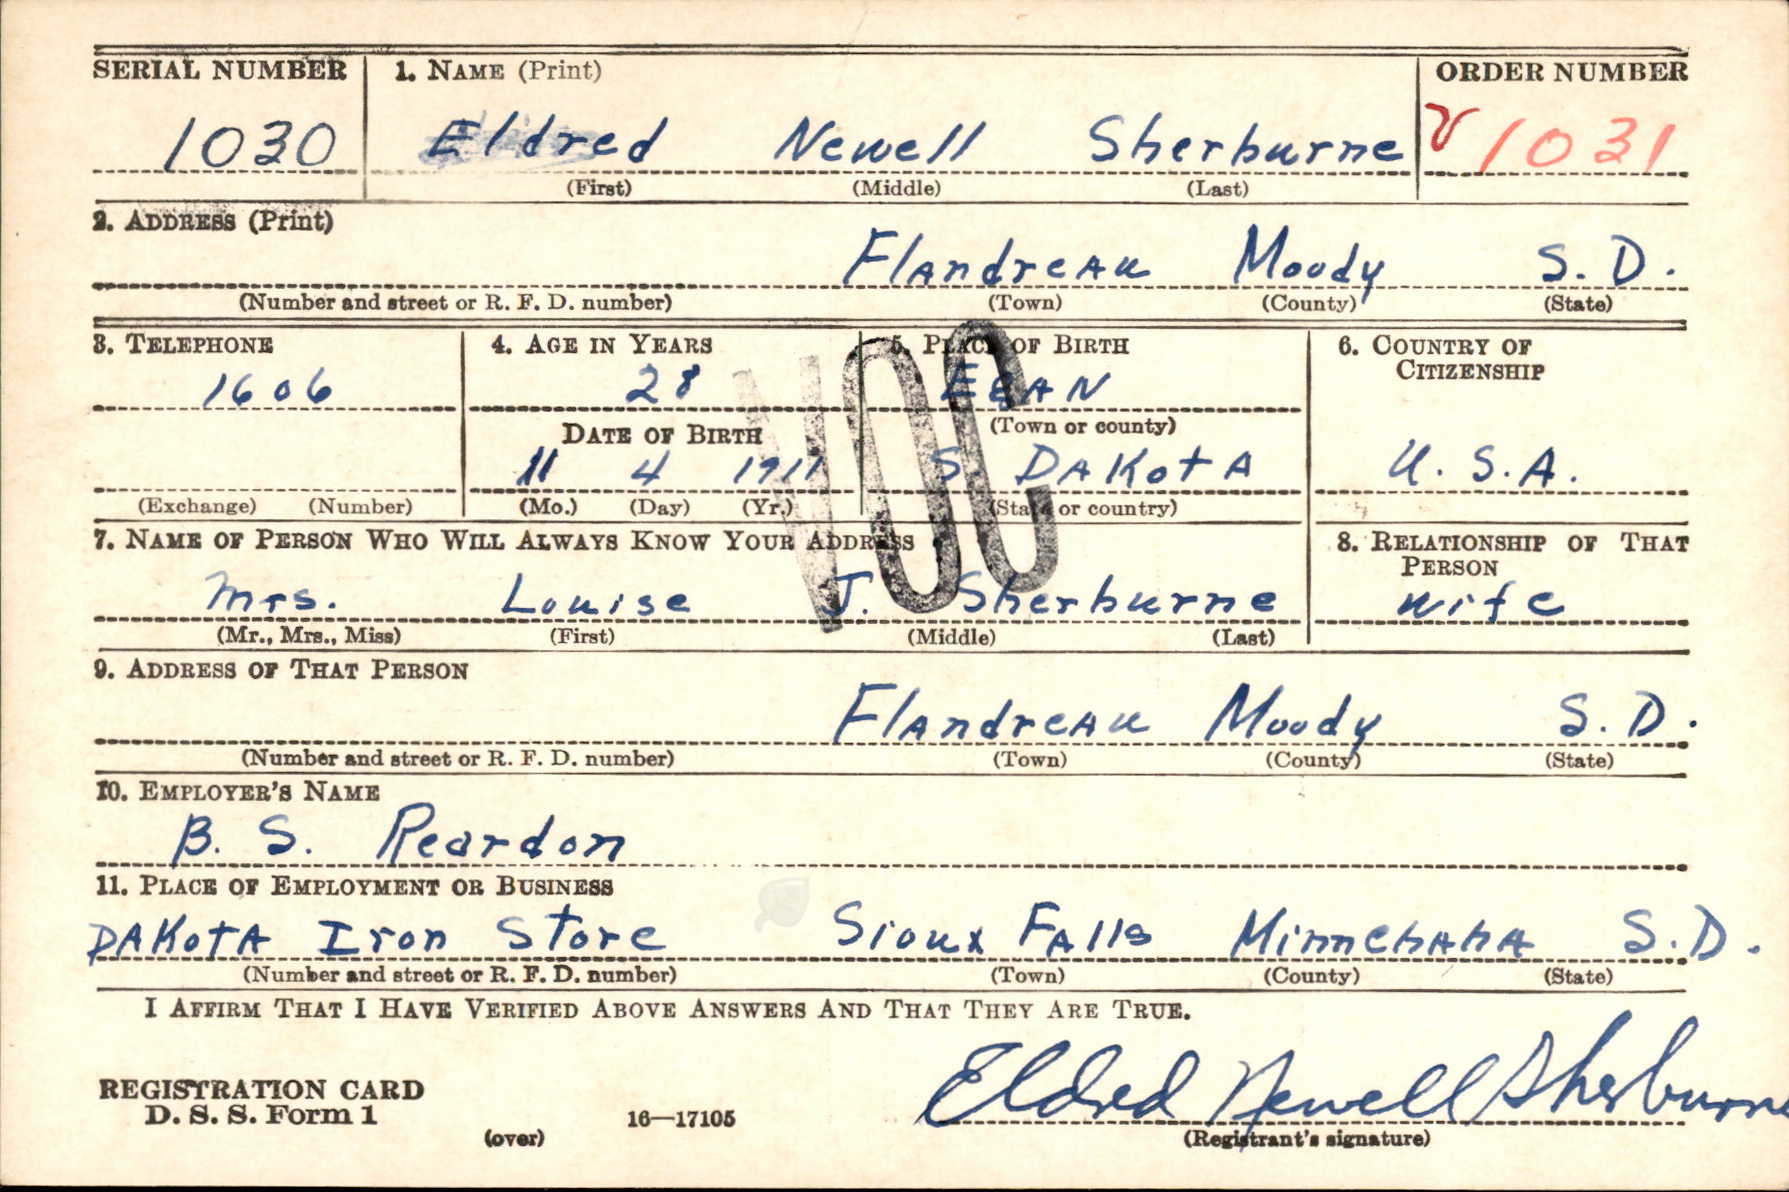 SERIAL NUMBER 1. NAME (Print) ORDER NUMBER
1030 Eldred Newell Sherburne V 1031
(First) (Middle) (Last)
2. ADDRESS (Print)
Flandreau Moody S. D.
(Number and street or R. F. D. number) (Town) (County) (State)
3. TELEPHONE 4. AGE IN YEARS 5. PLACE OF BIRTH 6. COUNTRY OF CITIZENSHIP
1606 28 EgAN
DATE OF BIRTH (Town or county)
11 4 1911 S. DAKotA U. S. A.
(Exchange) (Number) (Mo.) (Day) (Yr.) (State or country)
VOC
7. NAME OF PERSON WHO WILL ALWAYS KNOW YOUR ADDRESS 8. RELATIONSHIP OF THAT PERSON
Mrs. Louise J. Sherburne wife
(Mr., Mrs., Miss) (First) (Middle) (Last)
9. ADDRESS OF THAT PERSON
Flandreau Moody S. D.
(Number and street or R. F. D. number) (Town) (County) (State)
10. EMPLOYER'S NAME
B. S. Reardon
11. PLACE OF EMPLOYMENT OR BUSINESS
DAKotA Iron Store Sioux FAlls MinnehAhA S. D.
(Number and street or R. F. D. number) (Town) (County) (State)
I AFFIRM THAT I HAVE VERIFIED ABOVE ANSWERS AND THAT THEY ARE TRUE.
Eldred Newell Sherburne
REGISTRATION CARD
D. S. S. Form 1 16—17105
(over) (Registrant's signature)